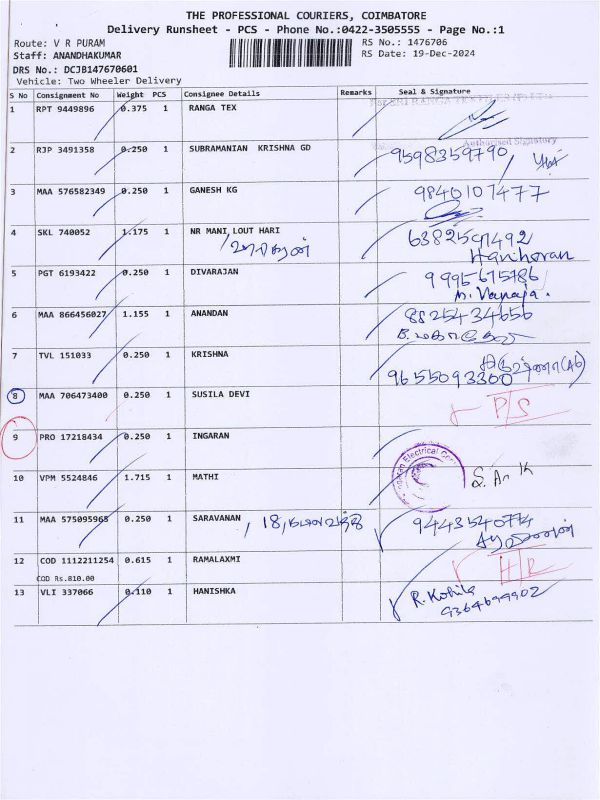 THE PROFESSIONAL COURIERS, COIMBATORE
Delivery Runsheet - PCS - Phone No.:0422-3505555 - Page No.:1
Route: V R PURAM RS No.: 1476706
Staff: ANANDHAKUMAR RS Date: 19-Dec-2024
DRS No.: DCJB147670601
Vehicle: Two Wheeler Delivery
S No Consignment No Weight PCS Consignee Details Remarks Seal & Signature
1 RPT 9449896 0.375 1 RANGA TEX
Authorised Signatory
2 RJP 3491358 0.250 1 SUBRAMANIAN KRISHNA GD 9598359790
3 MAA 576582349 0.250 1 GANESH KG 9840107477
4 SKL 740052 1.175 1 NR MANI LOUT HARI
Hariharan
5 PGT 6193422 0.250 1 DIVARAJAN 9995675786
6 MAA 866456027 1.155 1 ANANDAN 8825434656
7 TVL 151033 0.250 1 KRISHNA
9655093300
8 MAA 706473400 0.250 1 SUSILA DEVI P/S
9 PRO 17218434 0.250 1 INGARAN
Electrical
10 VPM 5524846 1.715 1 MATHI
11 MAA 575095968 0.250 1 SARAVANAN , 18, 9443540774
12 COD 1112211254 0.615 1 RAMALAXMI H/R
COD Rs.810.00
13 VLI 337066 0.110 1 HANISHKA R. Kohila
9364699902